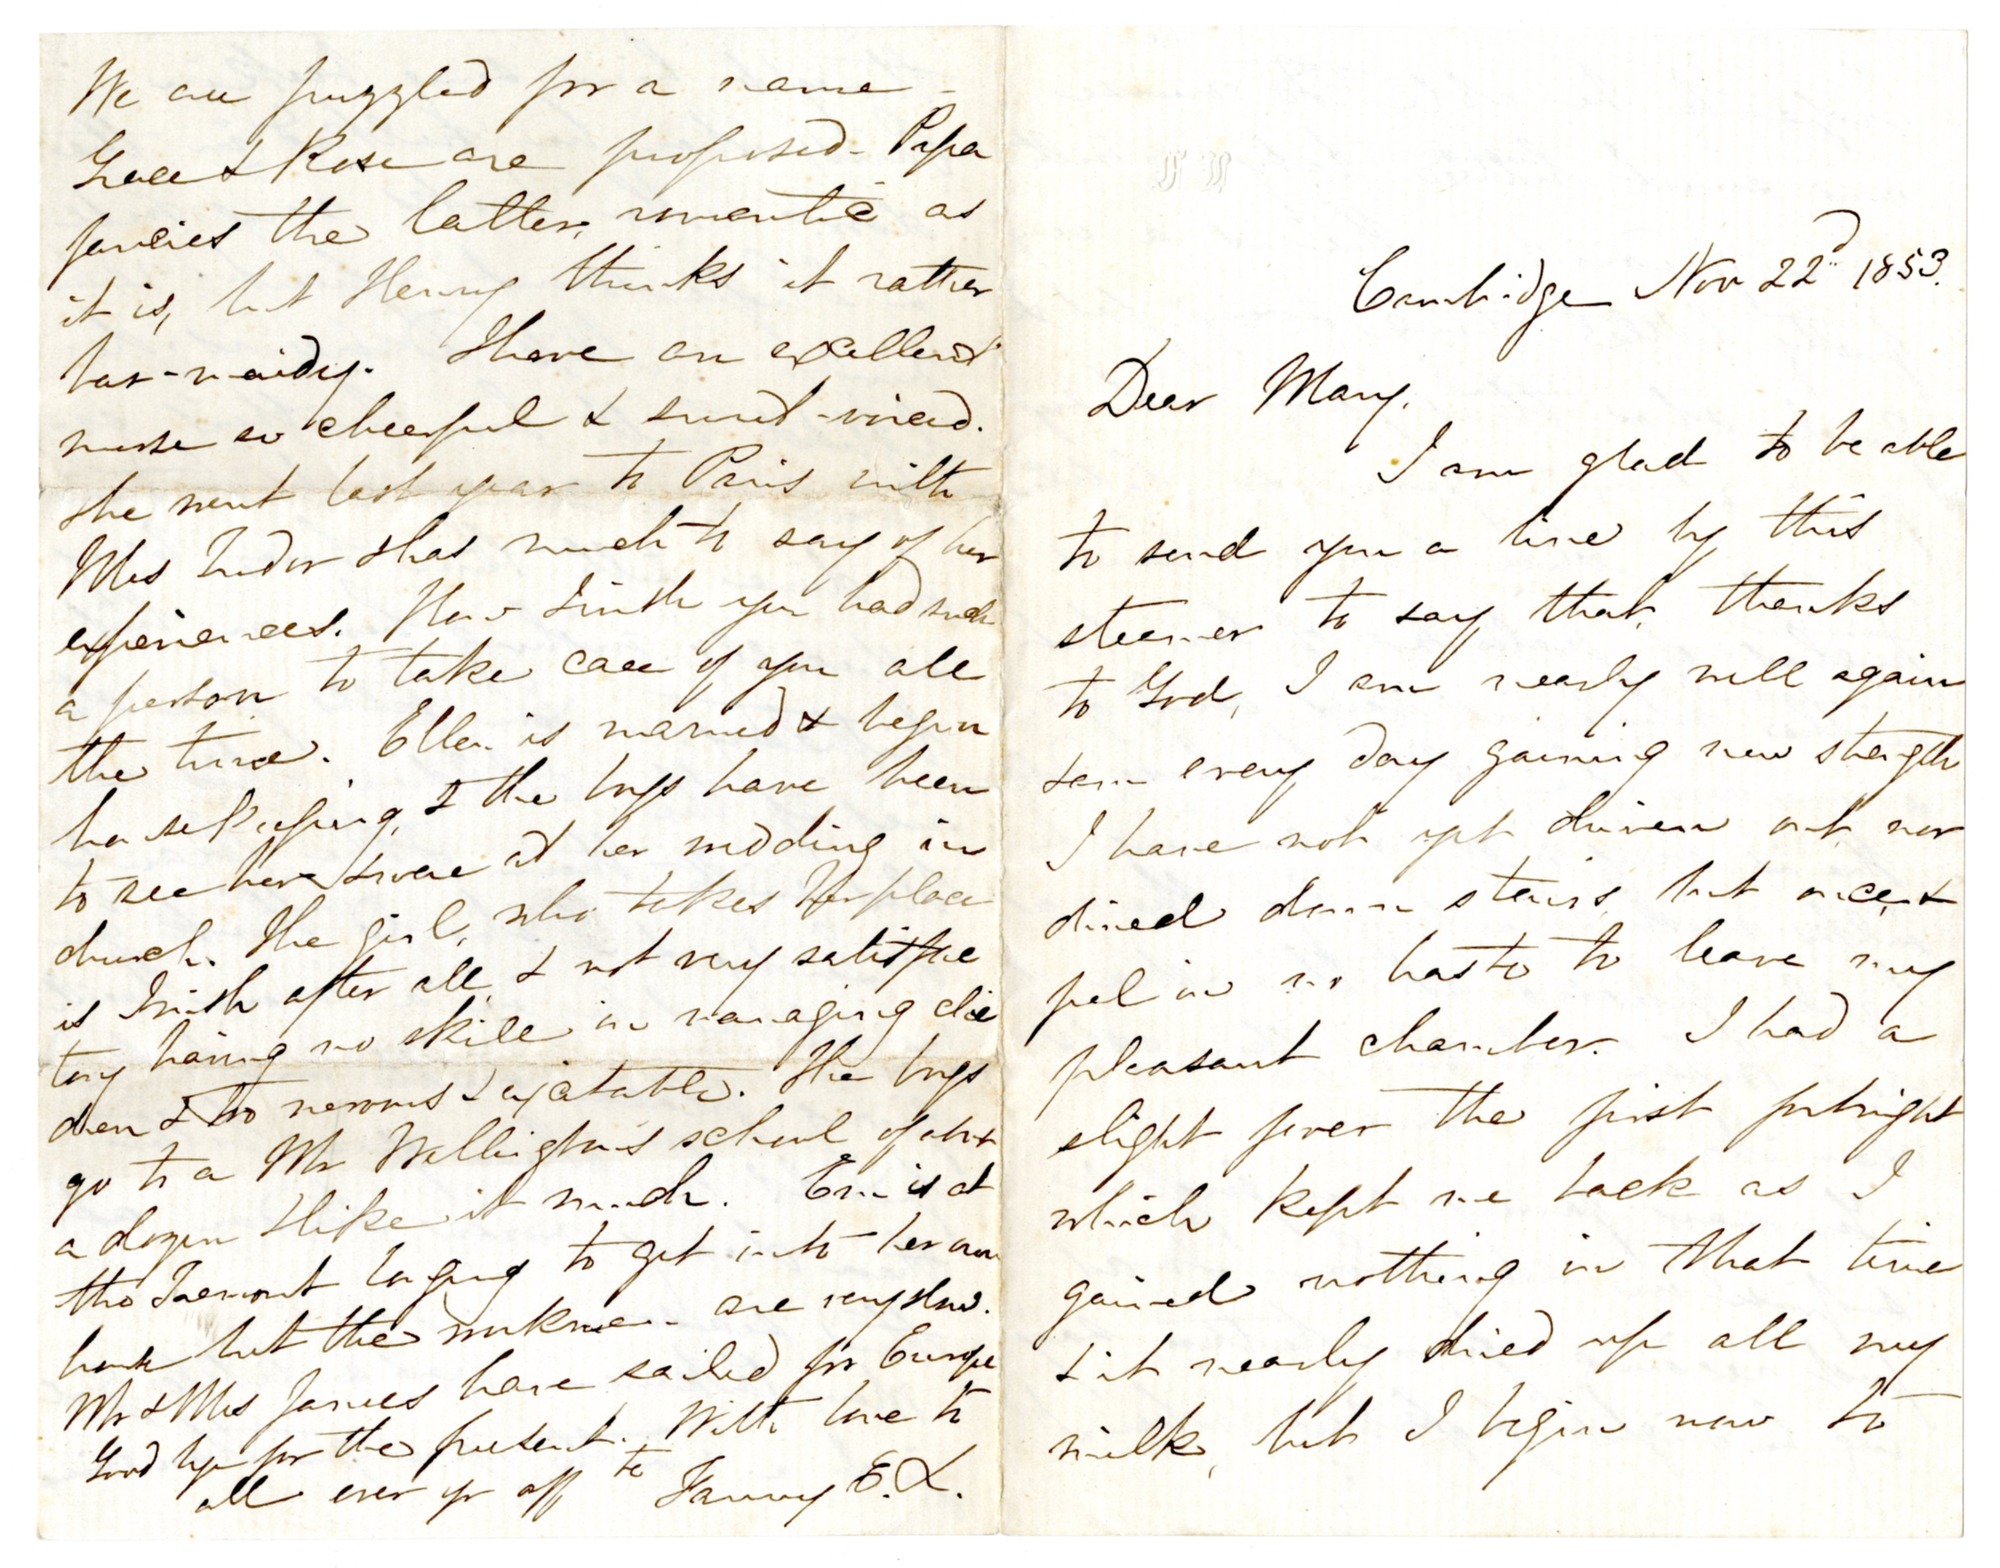 Cambridge Nov 22d 1853.
Dear Mary,
I am glad to be able
to send you a line by this
steamer to say that, thanks
to God, I am nearly well again
& am every day gaining new strength
I have not yet driven out, nor
dined down stairs, but once, &
feel in no haste to leave my
pleasant chamber. I had a
slight fever the first fortnight
which kept me back as I
gained nothing in that time
& it nearly dried up all my
milk, but I begin now to
We are puzzled for a name -
Grace & Rose are proposed - Papa
fancies the latter, romantic as
it is, but Henry thinks it rather
bar-maidy. I have an excellent
nurse so cheerful & sweet-voiced.
She went last year to Paris with
Mrs Tudor & has much to say of her
experiences. How I wish you had such
a person to take care of you all
the time. Ellen is married & begun
housekeeping, & the boys have been
to see her & were at her wedding in
church. The girl, who takes her place
is Irish after all, & not very satisfac
tory having no skill in managing chil
dren & too nervous & excitable. The boys
go to a Mr Wellington's school of about
a dozen & like it much. Em is at
the Tremont longing to get into her own
house but the workmen are very slow.
Mr & Mrs James have sailed for Europe
Good bye for the present. With love to
all ever yr aff te Fanny E. L.